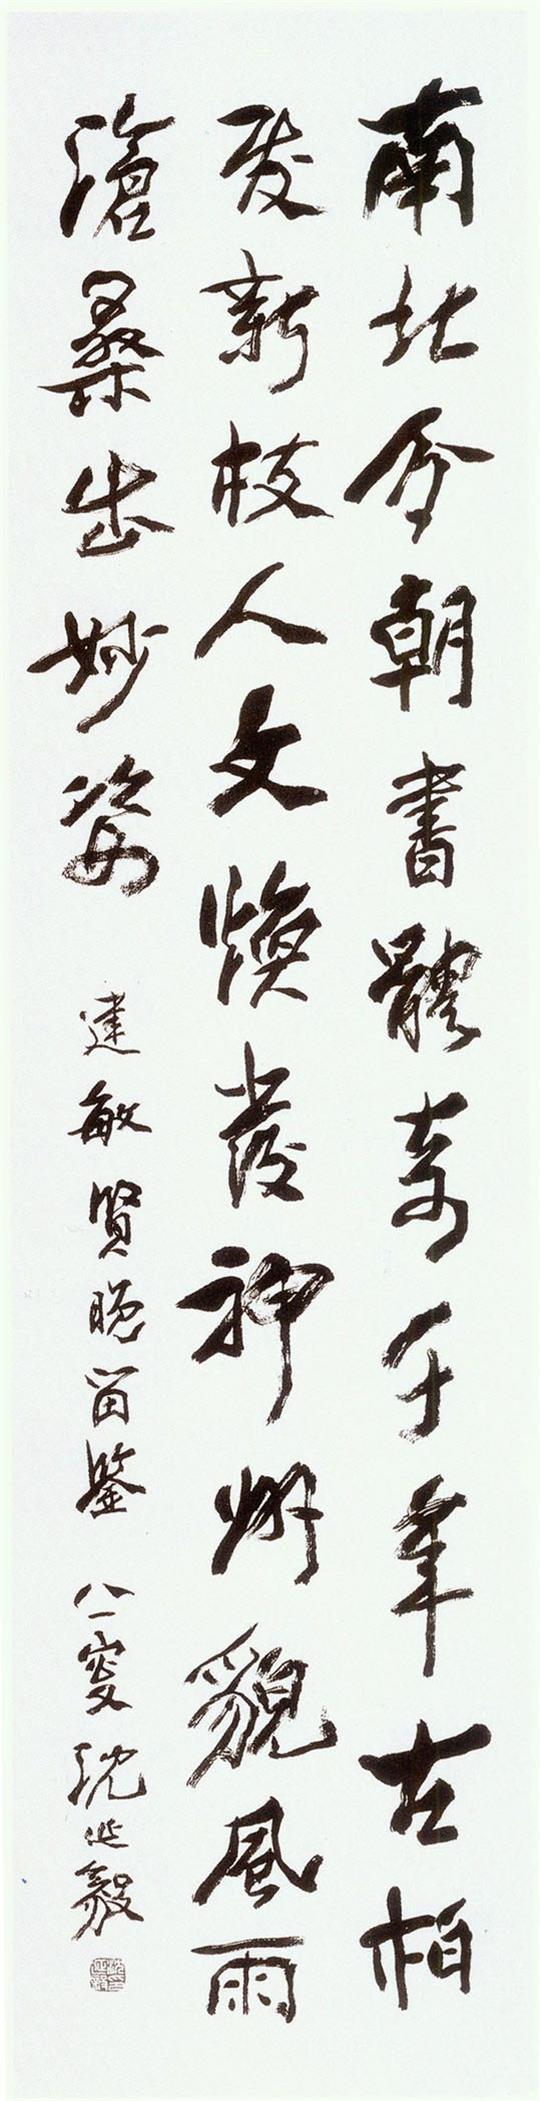 南北今朝書體奇千年古柏
發新枝人文煥發神州貌風雨
滄桑出妙姿
建敏賢晚留鑒
八一叟沈延毅